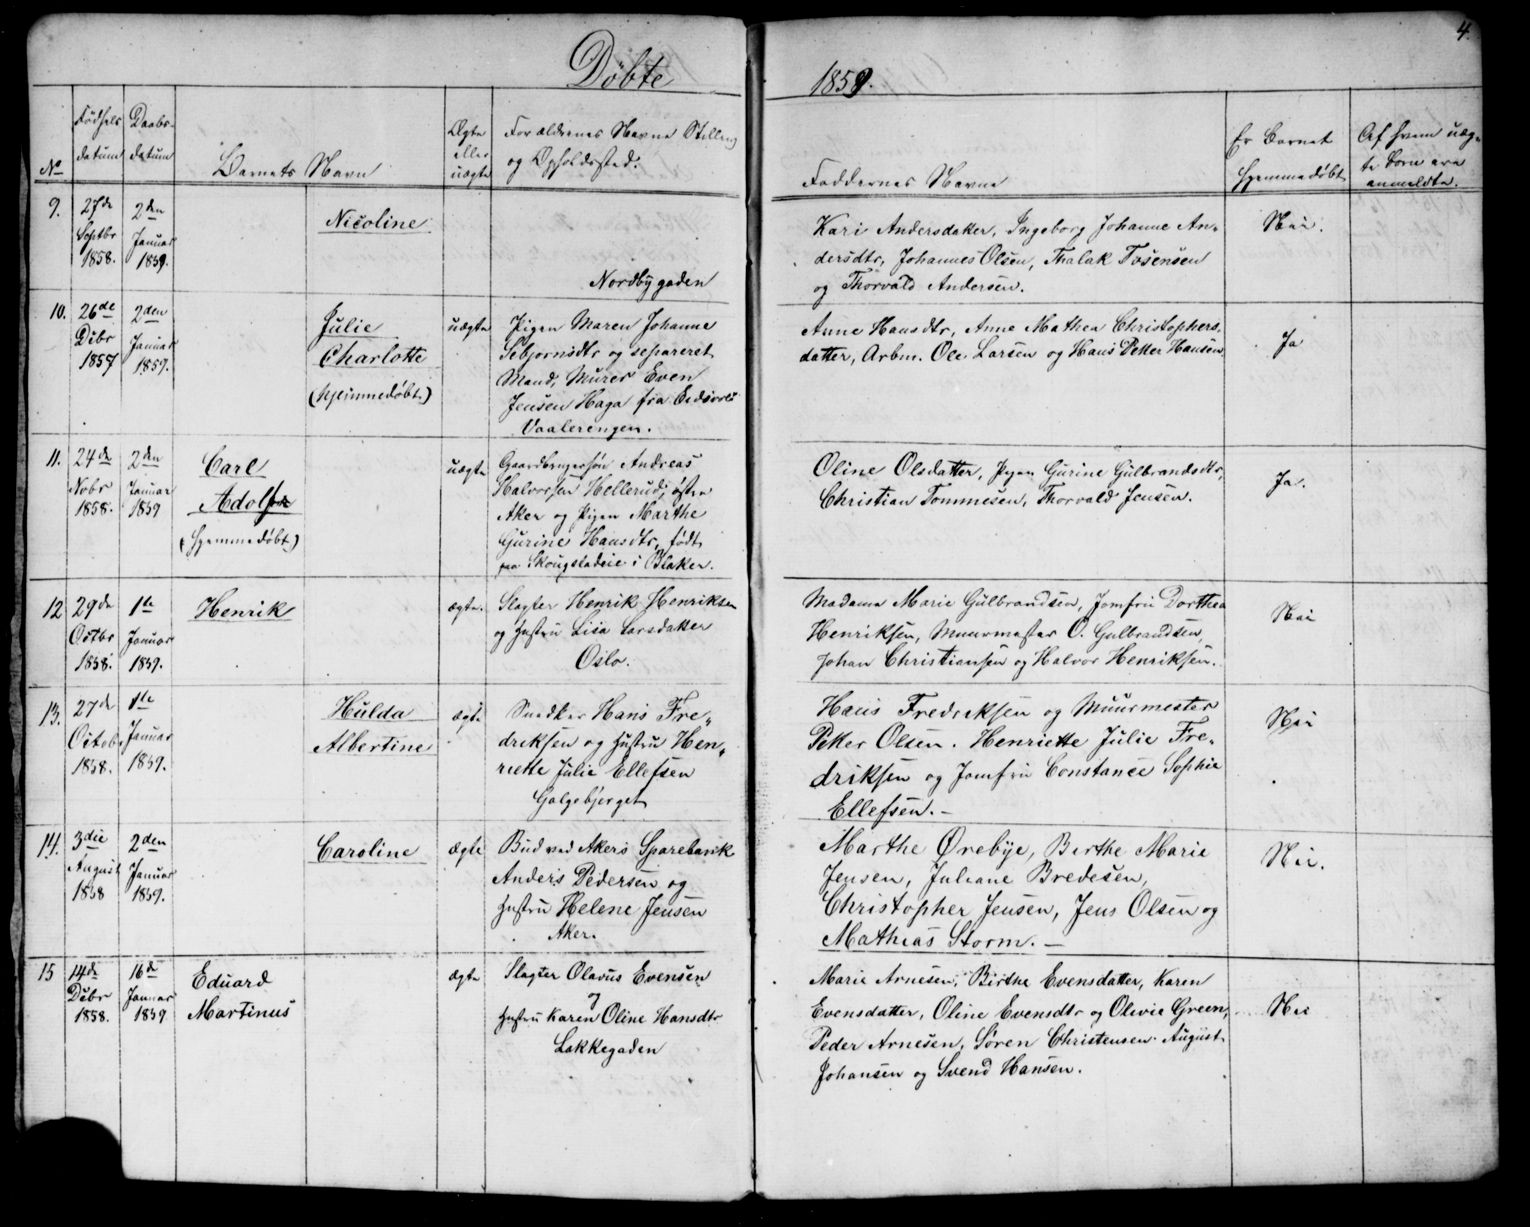 4.
Døbte 1859.
No
Fødsels datum
Daabs datum
Barnets Navn
Ægte eller uægte
Forældrenes Navne Stilling og Opholdssted.
Faddernes Navne
Er Barnet hjemmedøbt
Af hvem uægte børn ere anmeldte.
9.
27de Septbr 1858.
2den Januar 1859.
Nicoline
Nordbygaden
Kari Andersdatter, Ingeborg Johanne An-
dersdtr, Johannes Olsen, Thalak
og Thorvald Andersen.
Nei.
10.
26de Debr 1857
2den Januar 1859.
Julie
Charlotte
(hjemmedøbt)
uægte
Pigen Maren Johanne
og separeret
Mand, Murer Even
Jensen Haga fra Eidsvold
Vaalerengen.
Anne Hansdtr, Anne Mathea Christophers-
datter, Arbm. Ole Larsen og Hans Petter Hansen
Ja
11.
24de Nobr 1858.
2den Januar 1859
Carl
Adolf
(hjemmedøbt)
uægte
Gaardbrugersøn Andreas
Halvorsen Hellerud, østre
Aker og Pigen Marthe
Gurine Hansdtr, født
paa i Blaker.
Oline Olsdatter, Pigen Gurine Gulbrandsdtr,
Christian Tommesen, Thorvald Jensen.
Ja.
12
29de Octbr 1858.
1ste Januar 1859.
Henrik
ægte.
Slagter Henrik Henriksen
og Hustru Lisa Larsdatter
Oslo.
Madame Marie Gulbrandsen, Jomfru Dorthea
Henriksen, Muurmester O. Gulbrandsen,
Johan Christiansen og Halvor Henriksen.
Nei
13.
27de Octob. 1858.
1ste Januar 1859.
Hulda
Albertine
ægte
Snedker Hans Fre-
driksen og Hustru Hen-
riette Julie Ellefsen
Galgebjerget
Hans Fredriksen og Muurmester
Peter Olsen. Henriette Julie Fre-
driksen og Jomfru Constance Sophie
Ellefsen.-
Nei
14.
3die August 1858
2den Januar 1859.
Caroline
ægte
Bud ved Akers Sparebank
Anders Pedersen og
Hustru Helene Jensen
Aker.
Marthe Ørebye, Berthe Marie
Jensen, Juliane Bredesen,
Christopher Jensen, Jens Olsen og
Mathias Storm.-
Nei.
15
14de Debr 1858.
16de Januar 1859
Eduard
Martinus
ægte
Slagter Olavus Evensen
og
Hustru Karen Oline Hansdtr
Lakkegaden
Marie Arnesen, Birthe Evensdatter, Karen
Evensdatter, Oline Evensdtr og Olivie Green,
Peder Arnesen, Søren Christensen. August
Johansen og Svend Hansen.
Nei